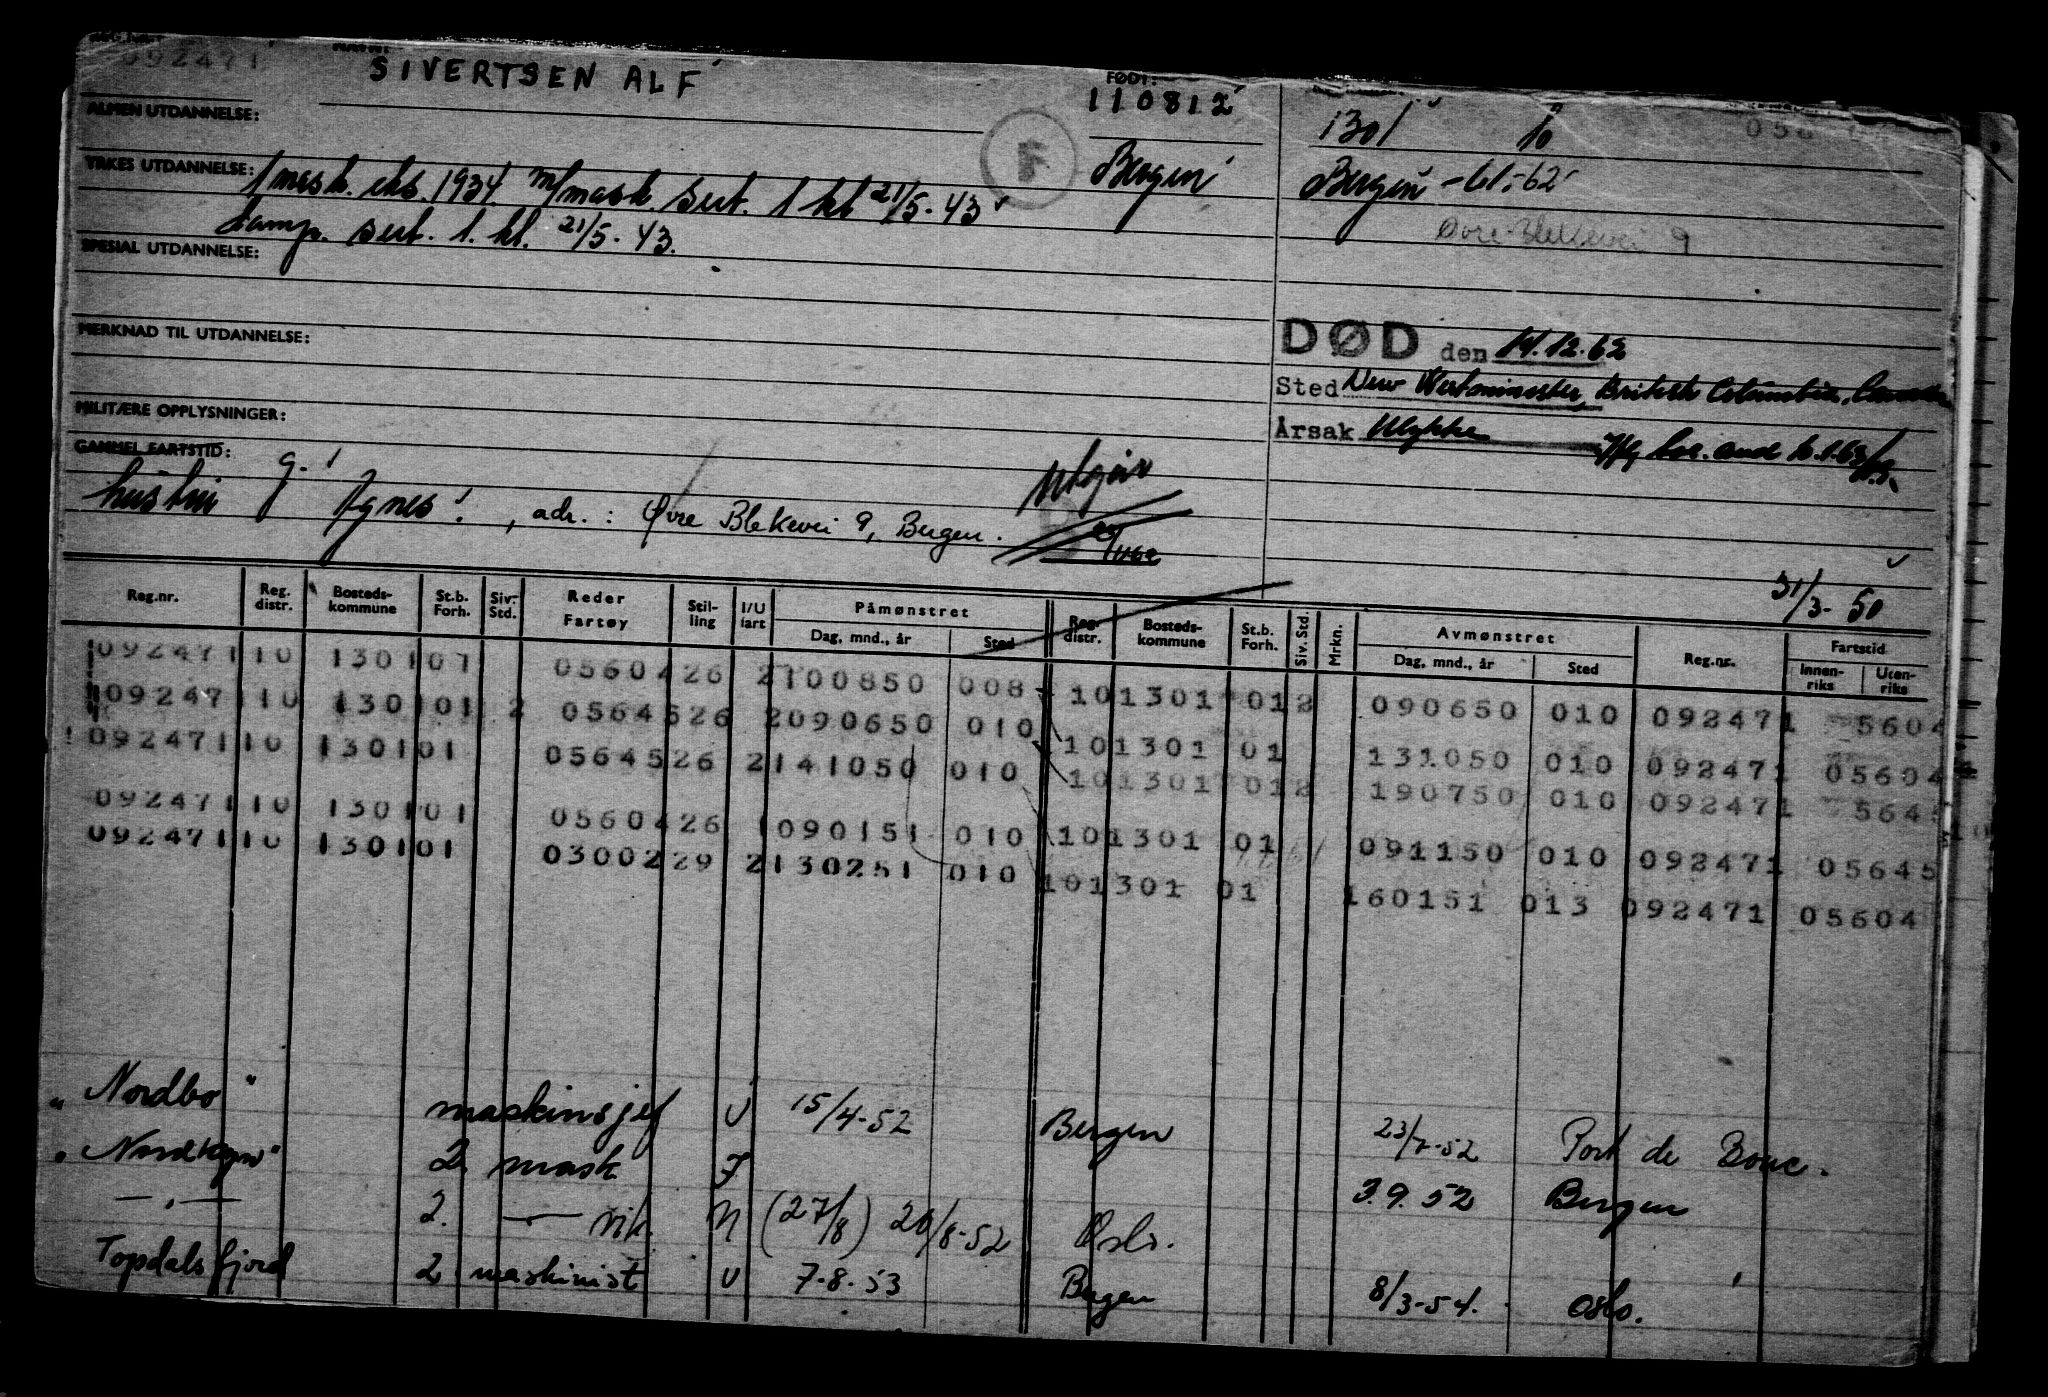 092471
SIVERTSEN ALF
FØDT:
110812
1301 10
ALMEN UTDANNELSE:
F
Bergen
Bergen -61-62
YRKES UTDANNELSE:
1 mask. eks. 1934. m/mask. sert. 1 kl 21/5-43
damp. sert. 1. kl. 21/5-43.
Øvre Blekevei 9
SPESIAL UTDANNELSE:
MERKNAD TIL UTDANNELSE:
DØD den 14.12.62
Sted New Westminster, British Columbia, Canada
Årsak Ulykke
MILITÆRE OPPLYSNINGER:
GAMMEL FARTSTID:
g.
Utgår
hustru Agnes. , adr.: Øvre Blekevei 9, Bergen.
31/3-50
Reg.nr. Reg. distr. Bosteds-kommune St.b. Forh. Siv. Std. Reder Fartøy Stil-ling I/U fart Påmønstret Dag, mnd., år Sted Reg. distr. Bosteds-kommune St.b. Forh. Siv. Std. Mrkn. Avmønstret Dag, mnd., år Sted Reg.nr. Fartstid Innen-riks Uten-riks
092471 10 1301 01 05604 26 2 100850 008 10 1301 01 2 090650 010 092471 5604
092471 10 1301 01 2 05645 26 2 090650 010 10 1301 01 131050 010 092471 05604
092471 10 1301 01 05645 26 2 141050 010 10 1301 01 2 190750 010 092471 5645
092471 10 1301 01 05604 26 1 090151 010 10 1301 01 091150 010 092471 05645
092471 10 1301 01 03002 29 2 130251 010 10 1301 01 160151 013 092471 05604
"Nordbo" maskinsjef U 15/4-52 Bergen 23/7-52 Port de Bouc.
"Nordkyn" 2 mask F 3.9.52 Bergen
— " — 2. — vik. N (27/8) 28/8-52 Oslo.
Topdalsfjord 2 maskinist U 7-8-53 Bergen 8/3-54. Oslo.